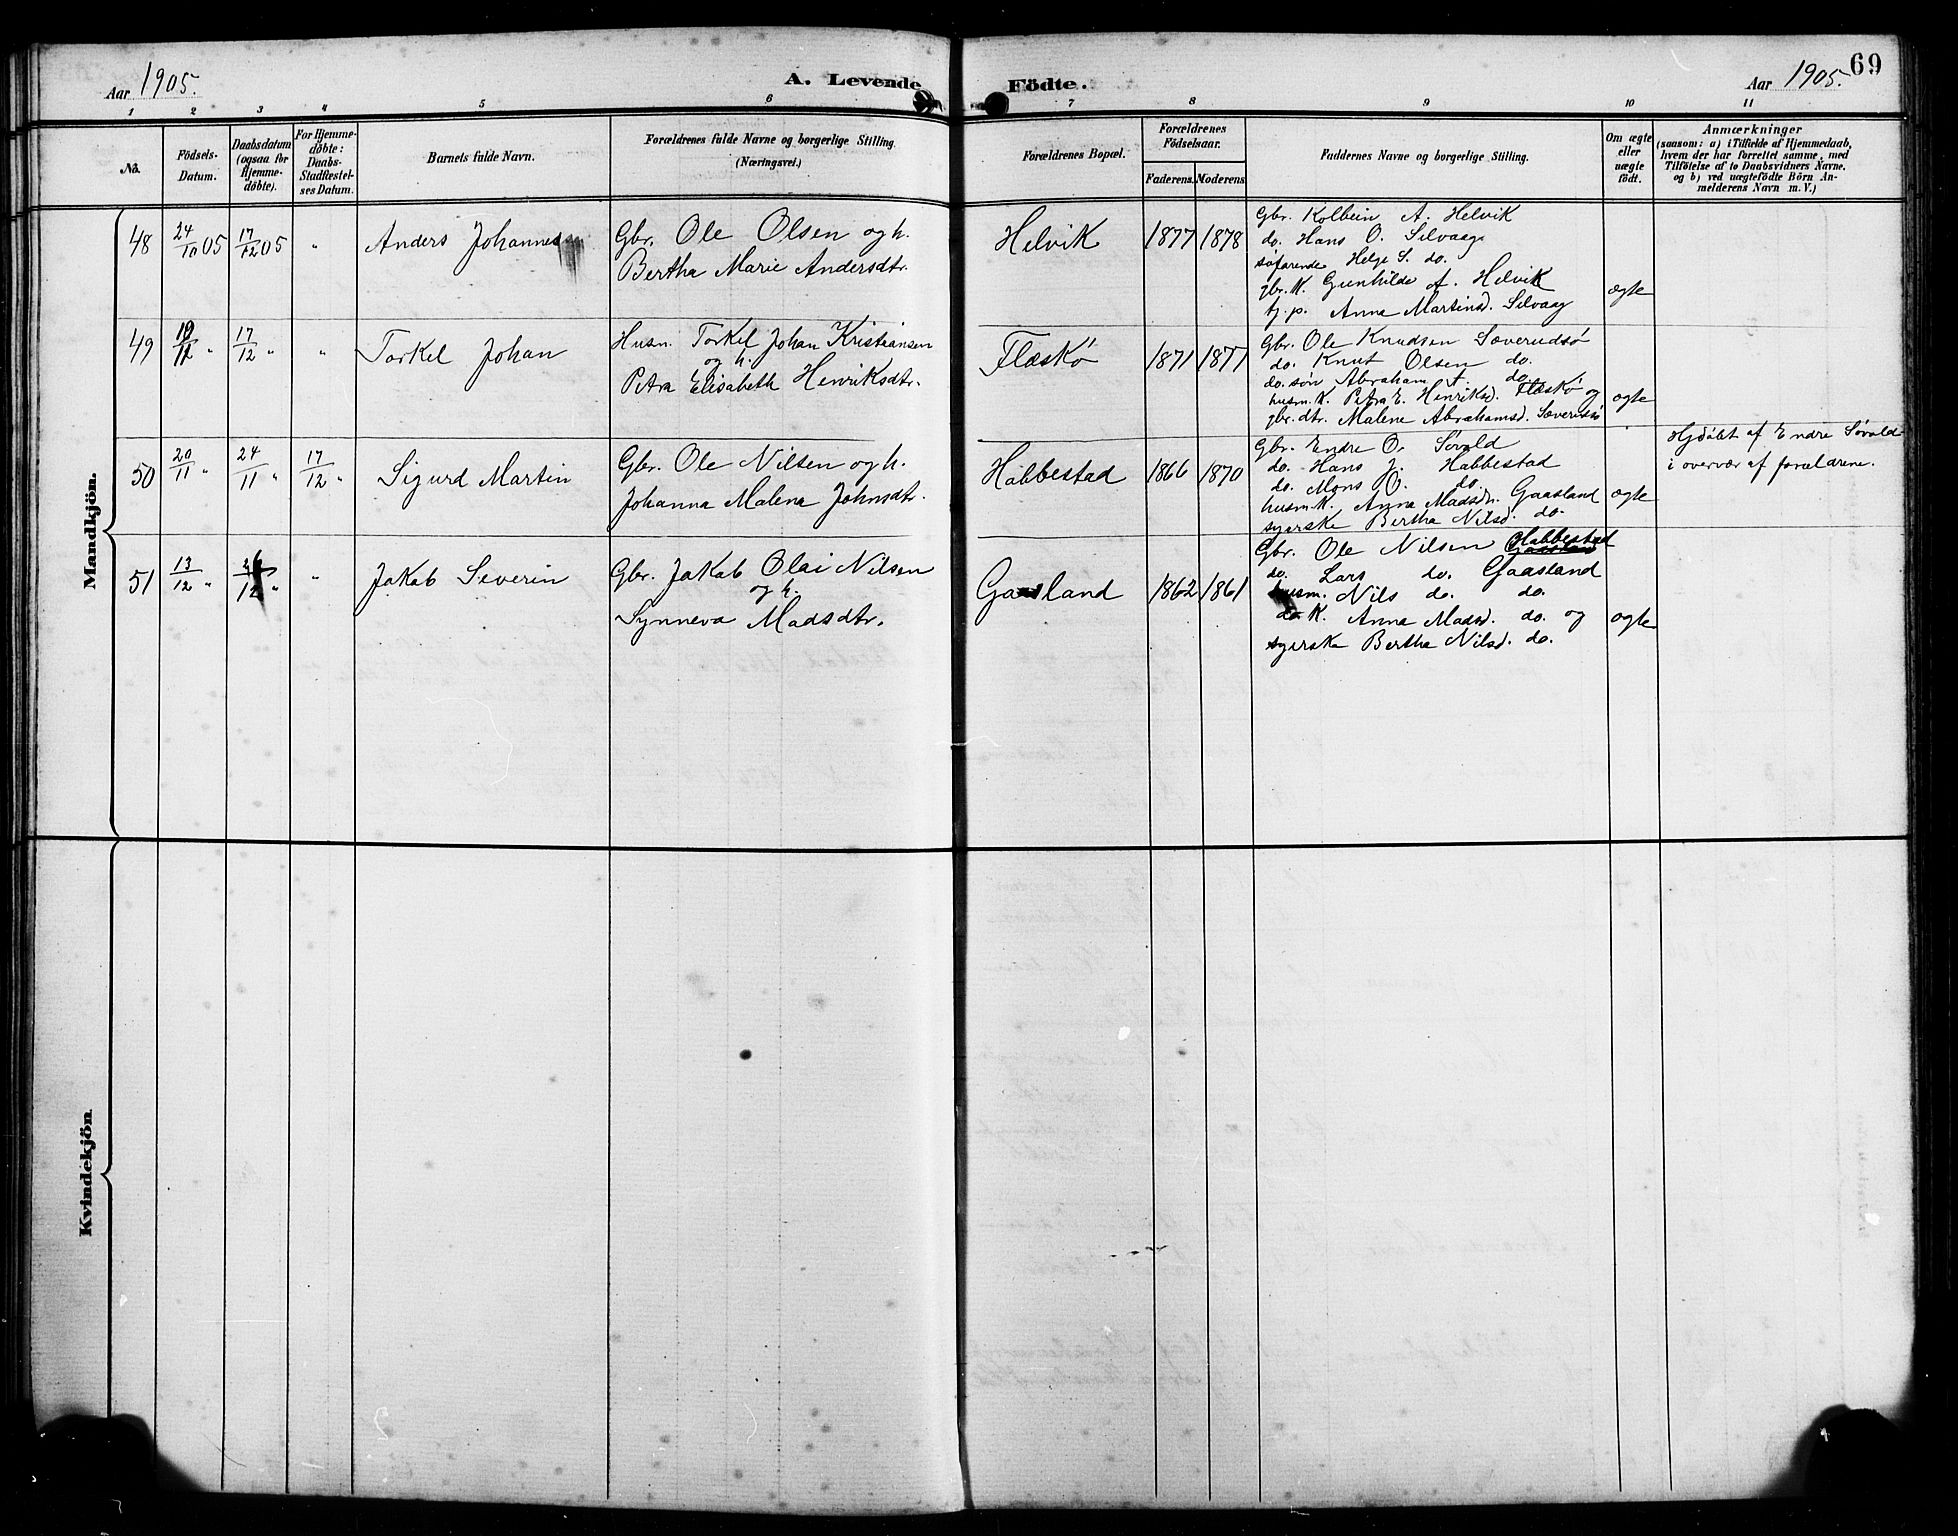 Aar 1905.
A. Levende Födte.
Aar 1905.
69
1 2 3 4 5 6 7 8 9 10 11
No.
Födsels-Datum.
Daabsdatum (ogsaa for Hjemme-döbte).
For Hjemme-döbte: Daabs-Stadfæstel-ses Datum.
Barnets fulde Navn.
Forældrenes fulde Navne og borgerlige Stilling.
(Næringsvei.)
Forældrenes Bopæl.
Forældrenes Födselsaar.
Faderens. Moderens
Faddernes Navne og borgerlige Stilling.
Om ægte eller uægte födt.
Anmærkninger
(saasom: a) i Tilfælde af Hjemmedaab,
hvem der har forrettet samme, med
Tilföielse af to Daabsvidners Navne,
og b) ved uægtefödte Börn An-
melderens Navn m. V.)
Mandkjön.
48 24/10 05 17/12 05 " Anders Johannes
Gbr. Ole Olsen og h.
Bertha Marie Andersdtr.
Helvik 1877 1878
Gbr. Kolbein A. Helvik
do. Hans O. Selvaag
søfarende Helge S. do.
gbr. K. Gunhilde A. Helvik
tj. p. Anna Martinsd. Selvaag
ægte
49 " 17/12 " " Torkel Johan
Husm. Torkel Johan Kristiansen
og h.
Petra Elisabeth Henriksdtr.
Flæskø 1871 1877
Gbr. Ole Knudsen Sæverudsø
do. Knut Olsen do.
do. søn Abraham A. do.
husm. K. Petra E. Henriksd. Flæskø og
gbr. dtr. Malene Abrahamsd. Sæverudsø
ægte
50 20/11 " 24/11 " 17/12 " Sigurd Martin
Gbr. Ole Nilsen og h.
Johanna Malena Johnsdtr.
Habbestad 1866 1870
Gbr. Endre O. Søvold
do. Hans J. Habbestad
do. Mons O. do.
husm. K. Anna Madsdr. Gaasland
syerske Bertha Nilsd. do.
ægte
Hjdøbt af Endre Søvold
i overvær af forældrene.
51 13/12 " 26/12 " " Jakob Severin
Gbr. Jakob Olai Nilsen
og h.
Synneva Madsdtr.
Gaasland 1862 1861
Gbr. Ole Nilsen Habbestad
do. Lars do. Gaasland
husm. Nils do. do.
do K. Anna Madsd. do. og
syerske Bertha Nilsd. do.
ægte
Kvindekjön